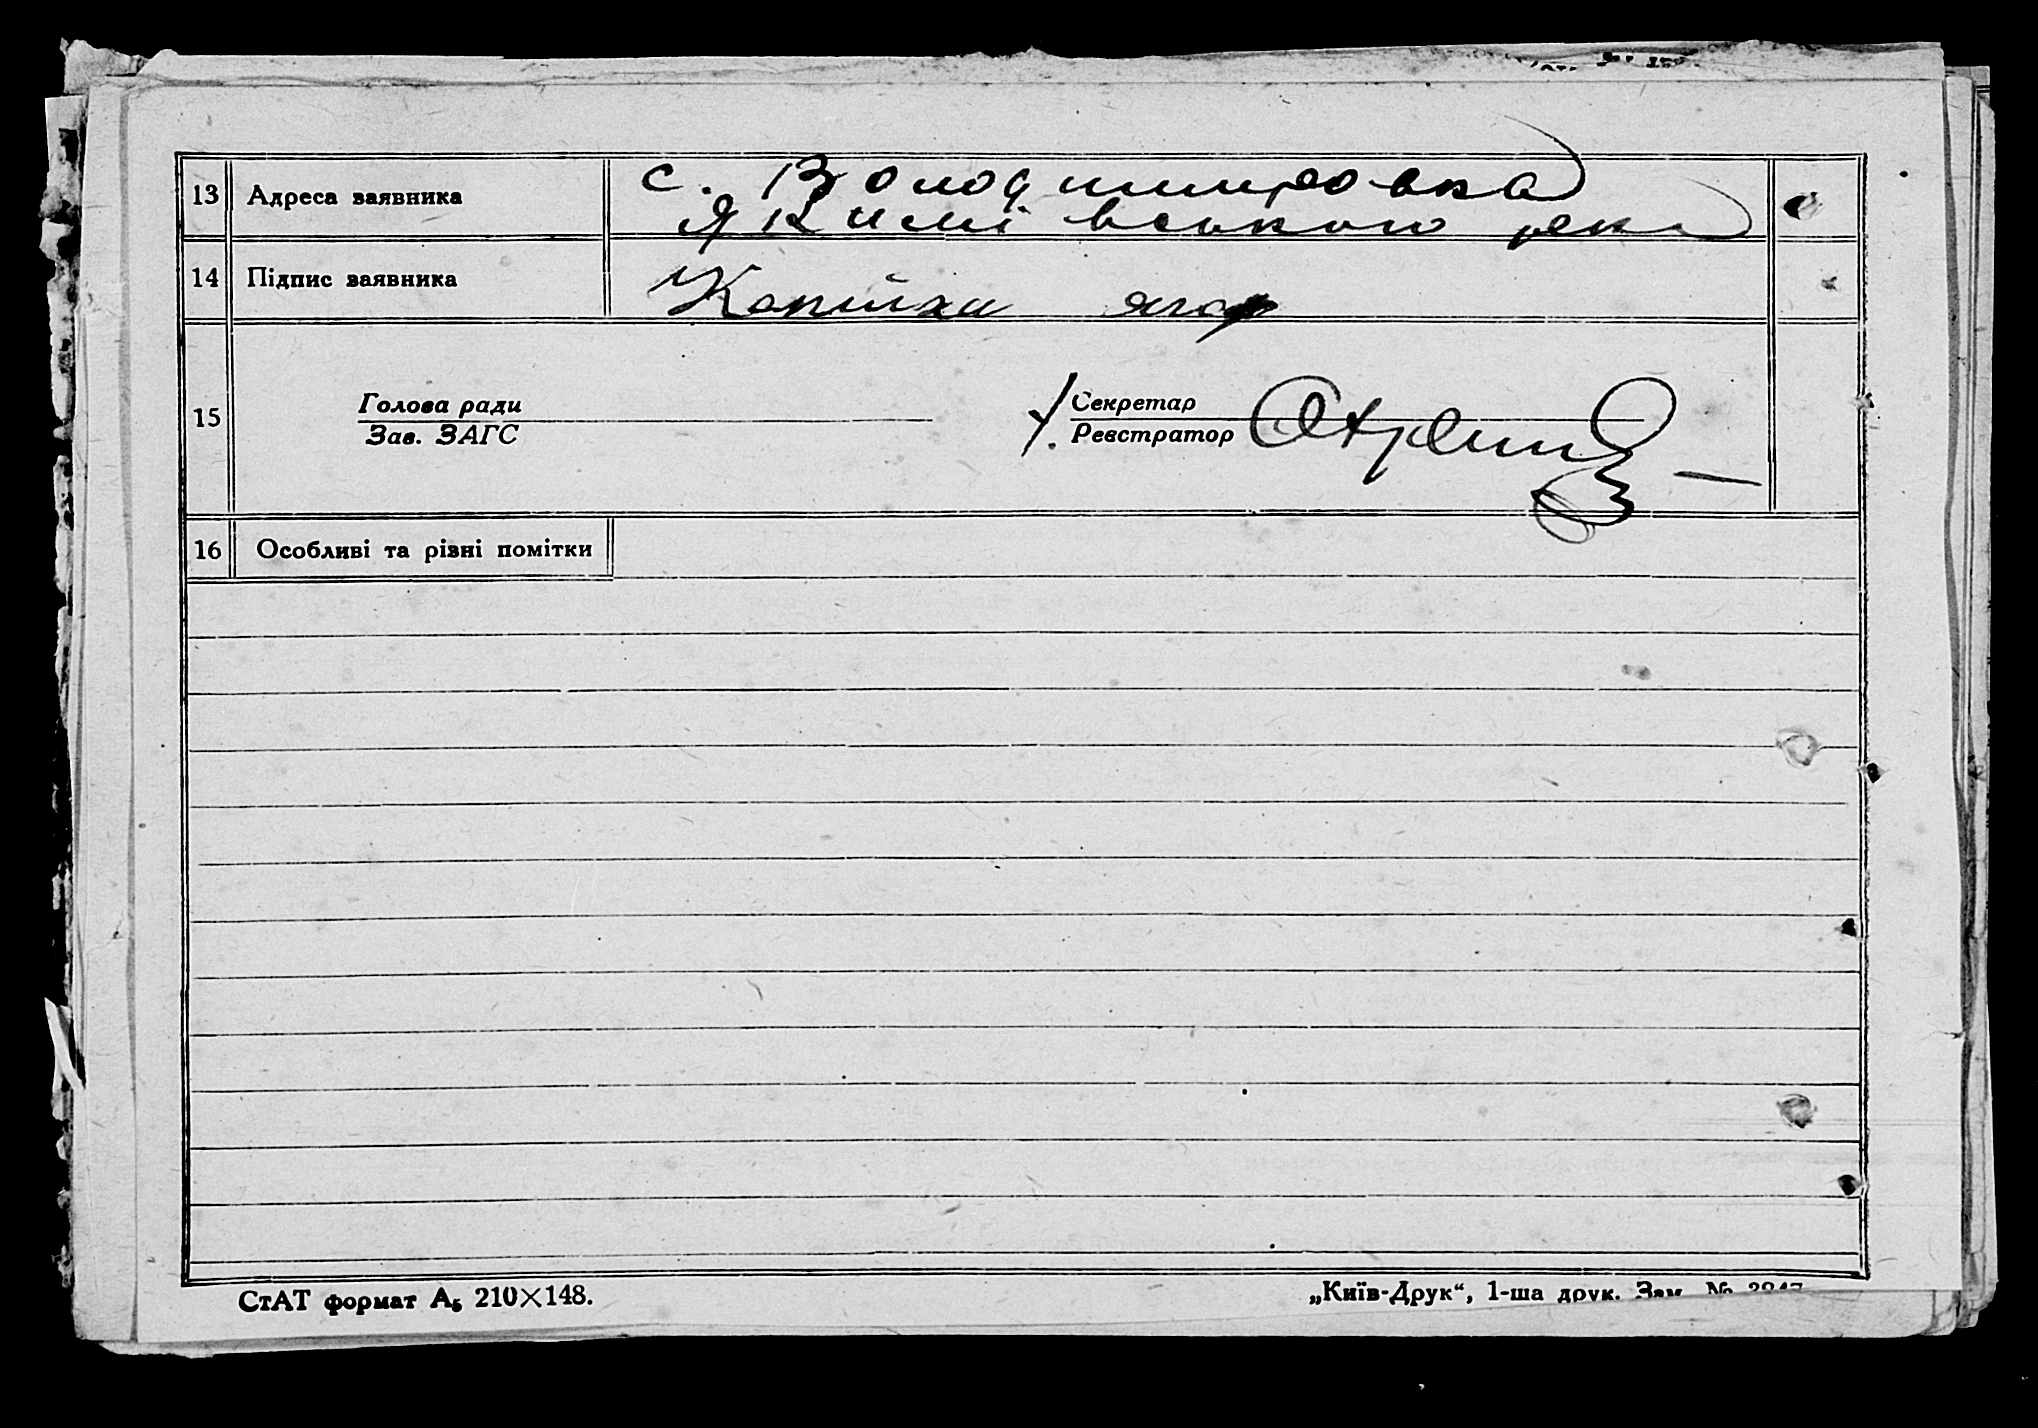 13 Адреса заявника с. Володимировка
Якимівського р-на
14 Підпис заявника
15 Голова ради
Зав. ЗАГС
Секретар
Реєстратор
16 Особливі та різні помітки
СтАТ формат А5 210×148.
„Київ-Друк“, 1-ша друк. Зам. №